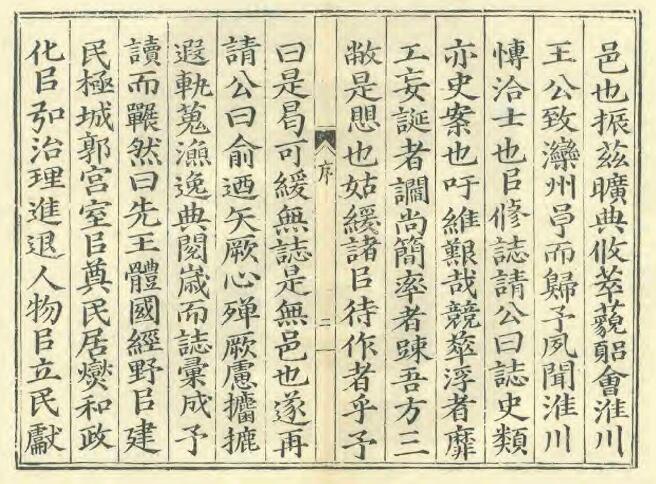 邑也振茲曠典攸萃會淮川
王公致灤州而歸予夙聞淮川
愽洽士也㠯修誌請公曰誌史類
亦史案也吁維艱哉競華浮者靡
工妄誕者讕尚簡率者踈吾方三
敝是愳也姑緩諸㠯待作者乎予
序
二
曰是曷可緩無誌是無邑也遂再
請公曰俞迺矢厥心殫厥慮攟摭
遐軌蒐漁逸典閱歲而誌彙成予
讀而囅然曰先王體國經野㠯建
民極城郭宮室㠯奠民居爕和政
化㠯弘治理進退人物㠯立民獻